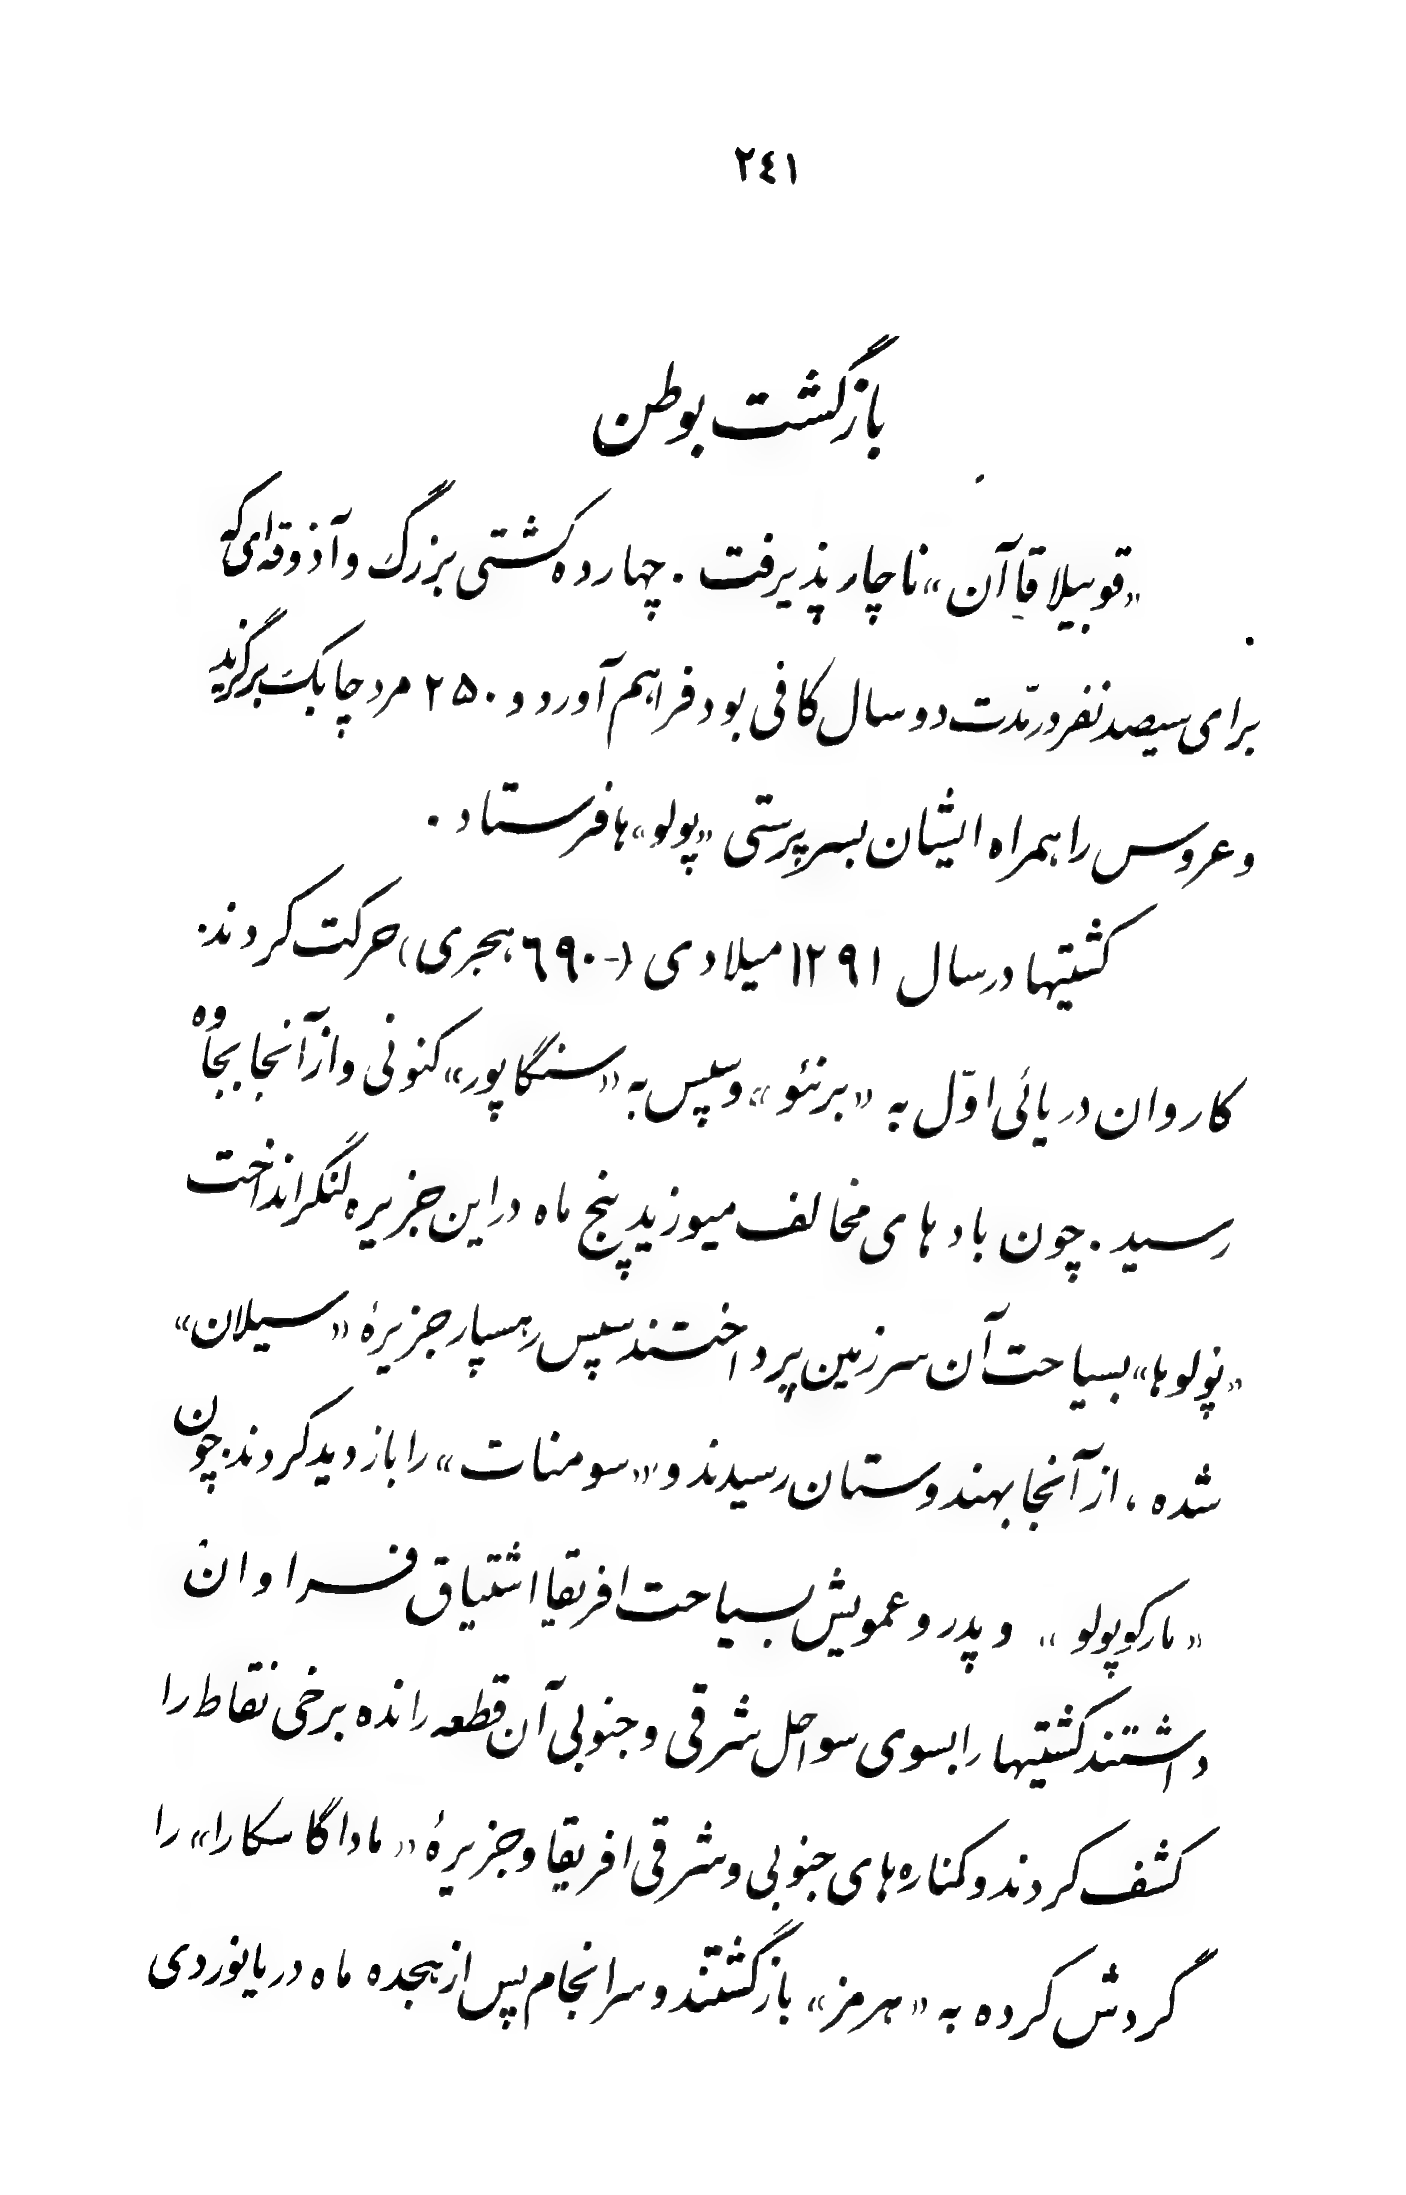 ٢٤١
بازگشت بوطن
«قوبیلا قاآن» ناچار پذیرفت . چهارده کشتی بزرگ و آذوقه‌ای که
برای سیصد نفر در مدّت دو سال کافی بود فراهم آورد و ۲۵۰ مرد چابک برگزید
و عروس را همراه ایشان بسرپرستی «پولو» ها فرستاد .
کشتیها در سال ۱۲۹۱ میلادی (-۶۹۰ هجری) حرکت کردند.
کاروان دریائی اوّل به «برنئو» و سپس به «سنگاپور» کنونی و از آنجا بجاوه
رسید . چون بادهای مخالف میوزید پنج ماه در این جزیره لنگر انداخت
«پولوها» بسیاحت آن سرزمین پرداختند سپس رهسپار جزیرهٔ «سیلان»
شده ، از آنجا بهندوستان رسیدند و «سومنات» را بازدید کردند. چون
«مارکوپولو» و پدر و عمویش بسیاحت افریقا اشتیاق فراوان
داشتند کشتیها را بسوی سواحل شرقی و جنوبی آن قطعه رانده برخی نقاط را
کشف کردند و کناره‌های جنوبی و شرقی افریقا و جزیرهٔ «ماداگاسکارا» را
گردش کرده به «هرمز» بازگشتند و سرانجام پس از هجده ماه دریانوردی